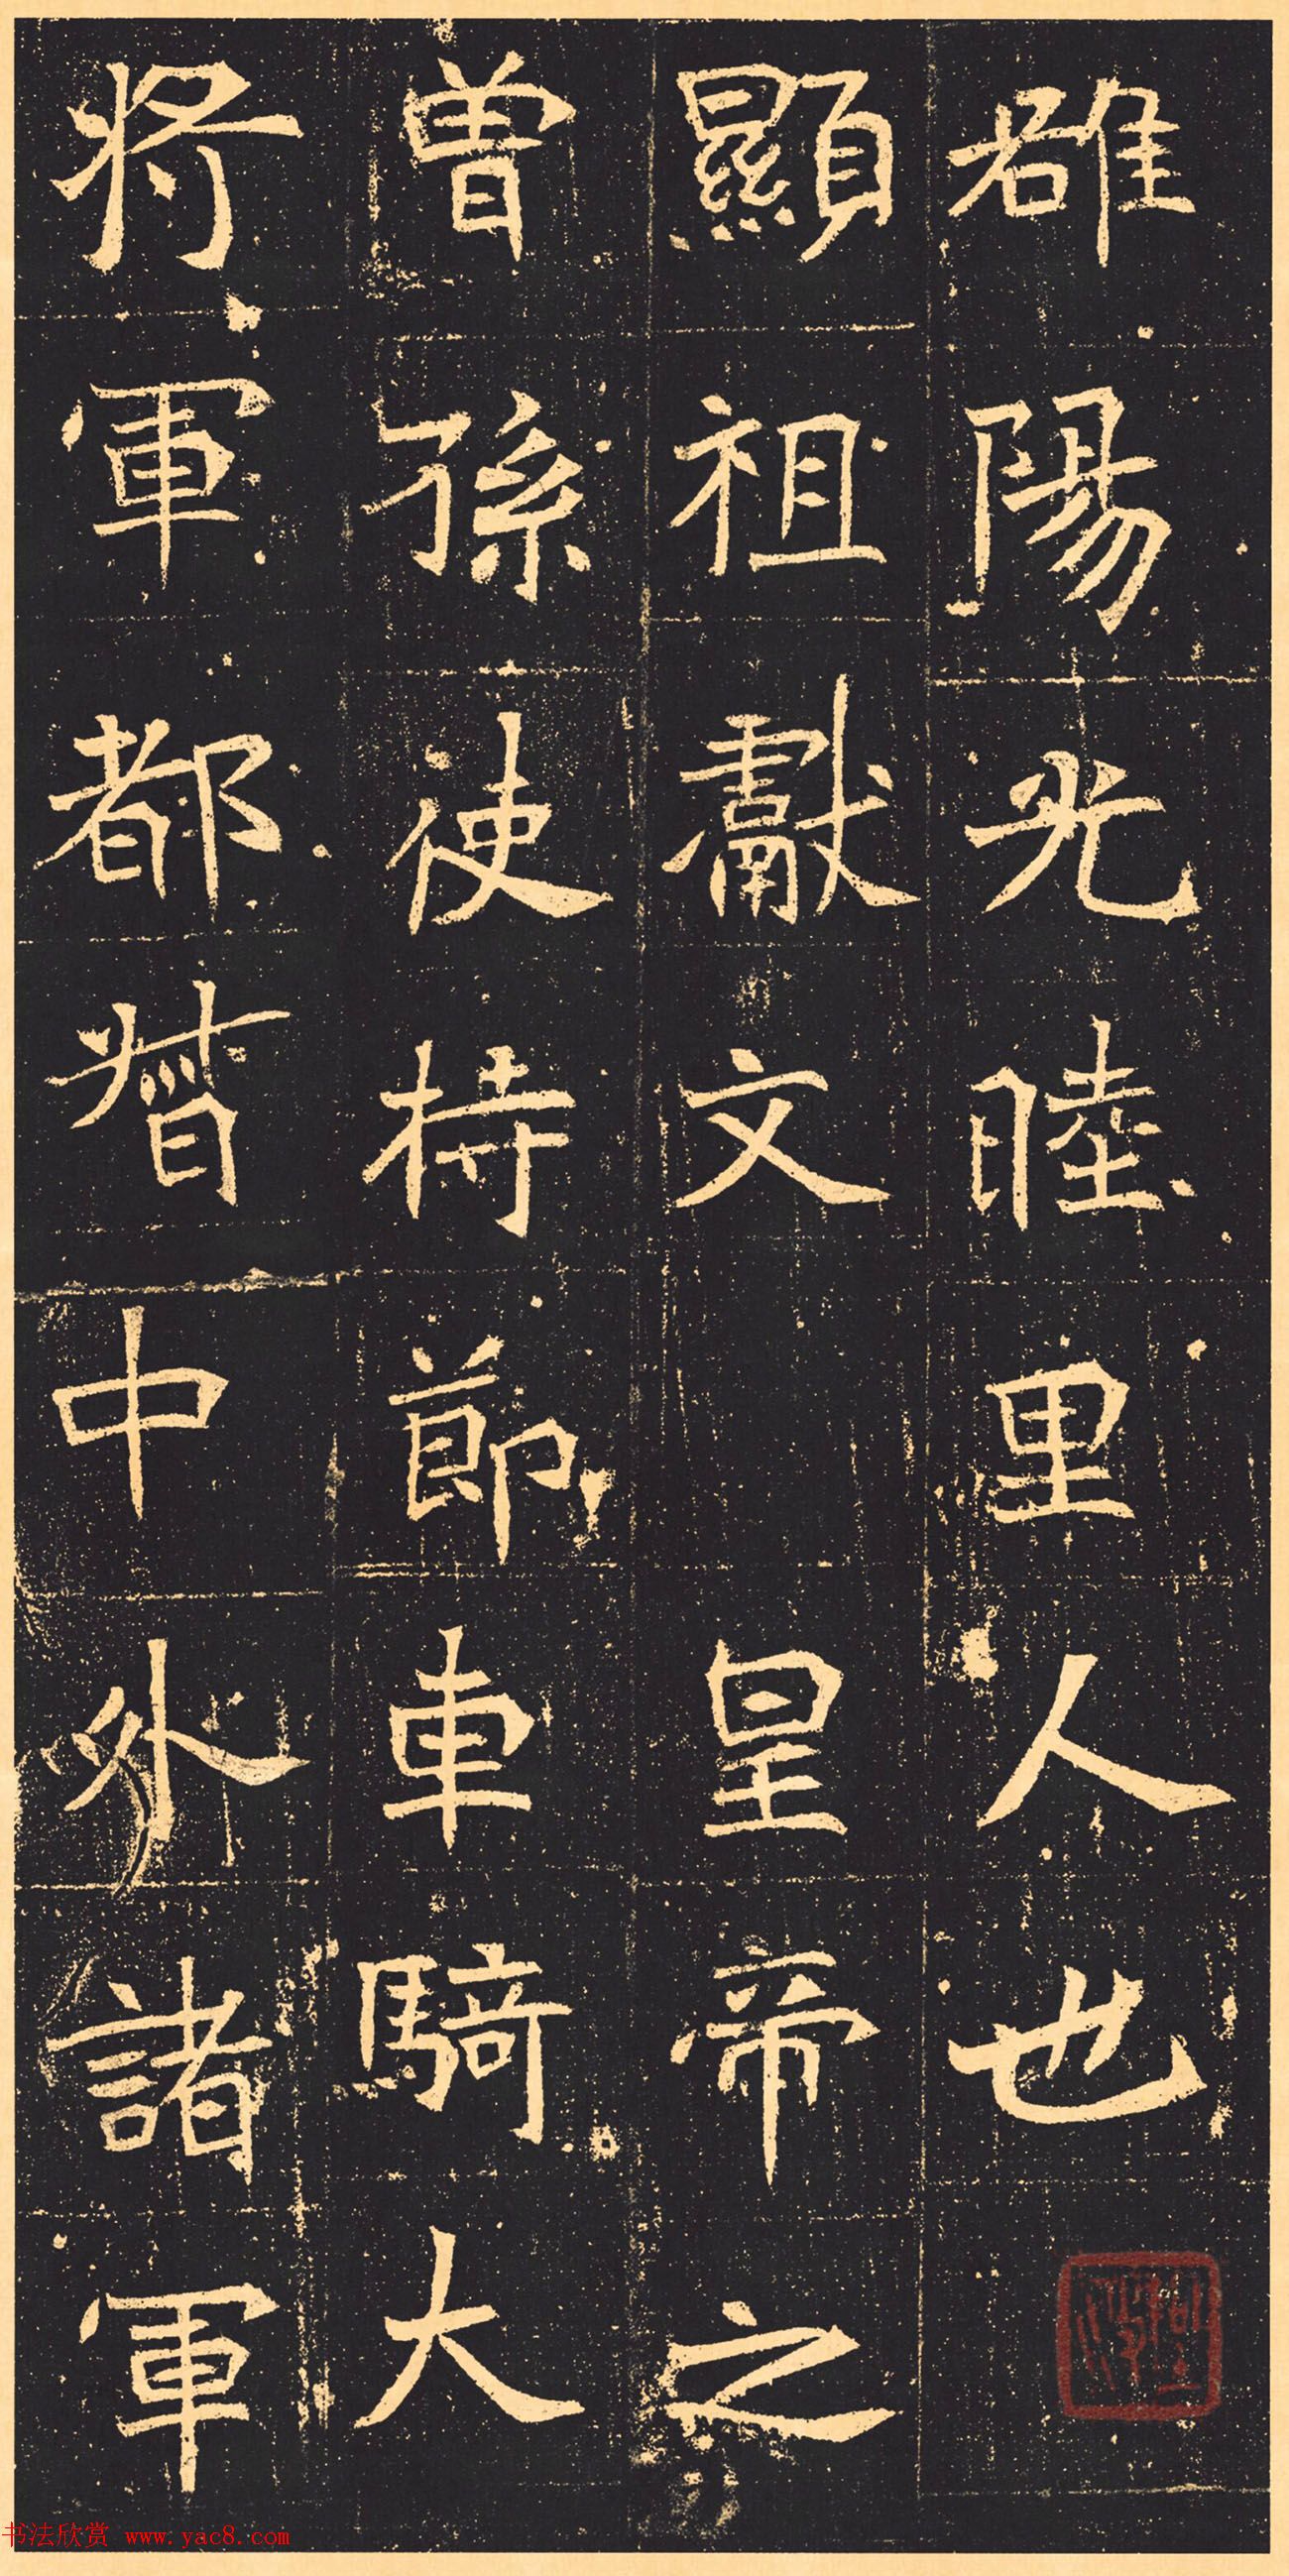 雒陽光睦里人也
顯祖獻文皇帝之
曽孫使持節車騎大
將軍都督中外諸軍
书法欣赏 www.yac8.com